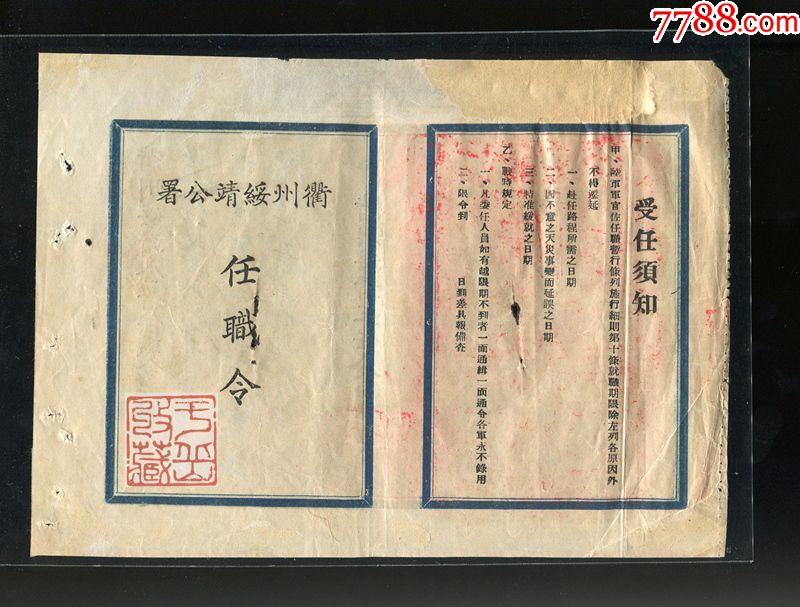 7788.com
受任須知
甲、陸軍軍官佐任職暫行條例施行細則第十條就職期限除左列各原因外
不得遲延
一、赴任路程所需之日期
二、因不意之天災事變而延誤之日期
三、特准緩就之日期
乙、戰時規定
一、凡委任人員如有越限期不到者一面通緝一面通令各軍永不錄用
二、限令到　　日到差具報備查
衢州綏靖公署
任職令